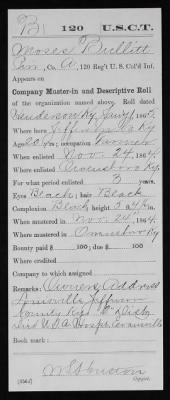 B | 120 | U.S.C.T.
Moses Bullitt
Pvt., Co. A, 120 Reg't U. S. Col'd Inf.
Appears on
Company Muster-in and Descriptive Roll
of the organization named above. Roll dated
Henderson Ky, 1865.
Where born Jefferson Co Ky
Age 20 y'rs; occupation Farmer
When enlisted Nov. 24, 1864.
Where enlisted Owensboro Ky.
For what period enlisted 3 years.
Eyes Black; hair Black
Complexion Black; height 5 ft. in.
When mustered in Nov. 24, 1864.
Where mustered in Owensboro Ky.
Bounty paid $ 100; due $ 100
Where credited
Company to which assigned
Remarks: Owners Address
Louisville Jefferson
County Ky. Dist.
U.S.A. Hosp.
Book mark:
Copyist.